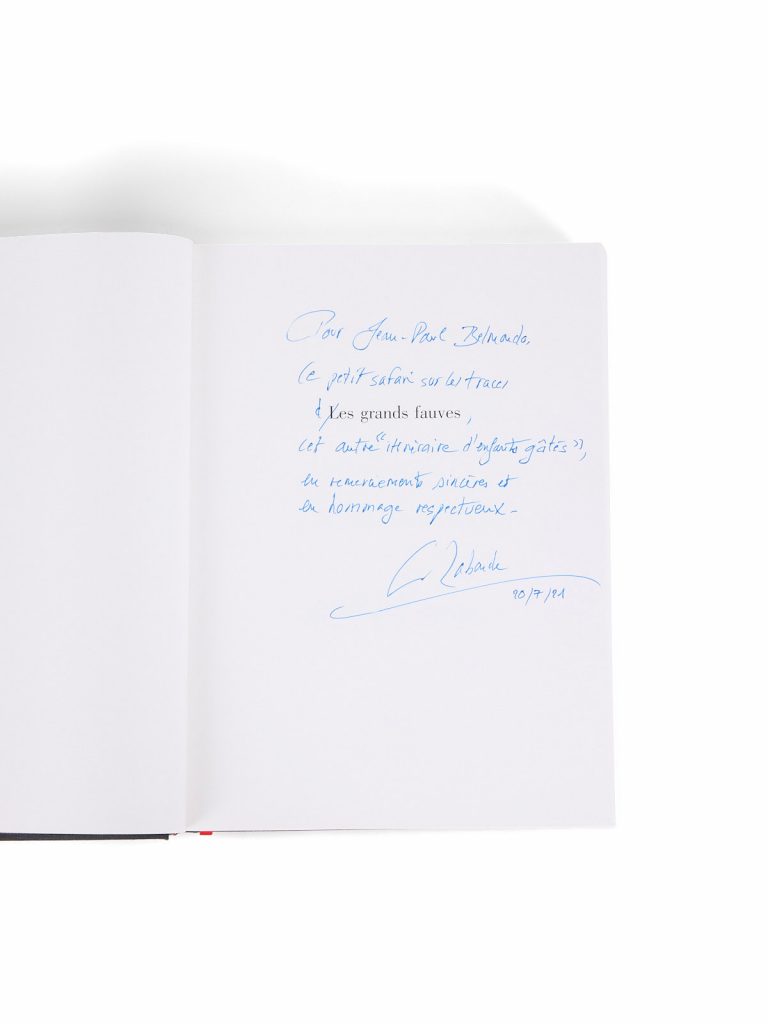 Pour Jean-Paul Belmondo,
ce petit safari sur les traces
d' Les grands fauves,
cet autre "itinéraire d'enfants gâtés",
en remerciements sincères et
en hommage respectueux -
20/7/21